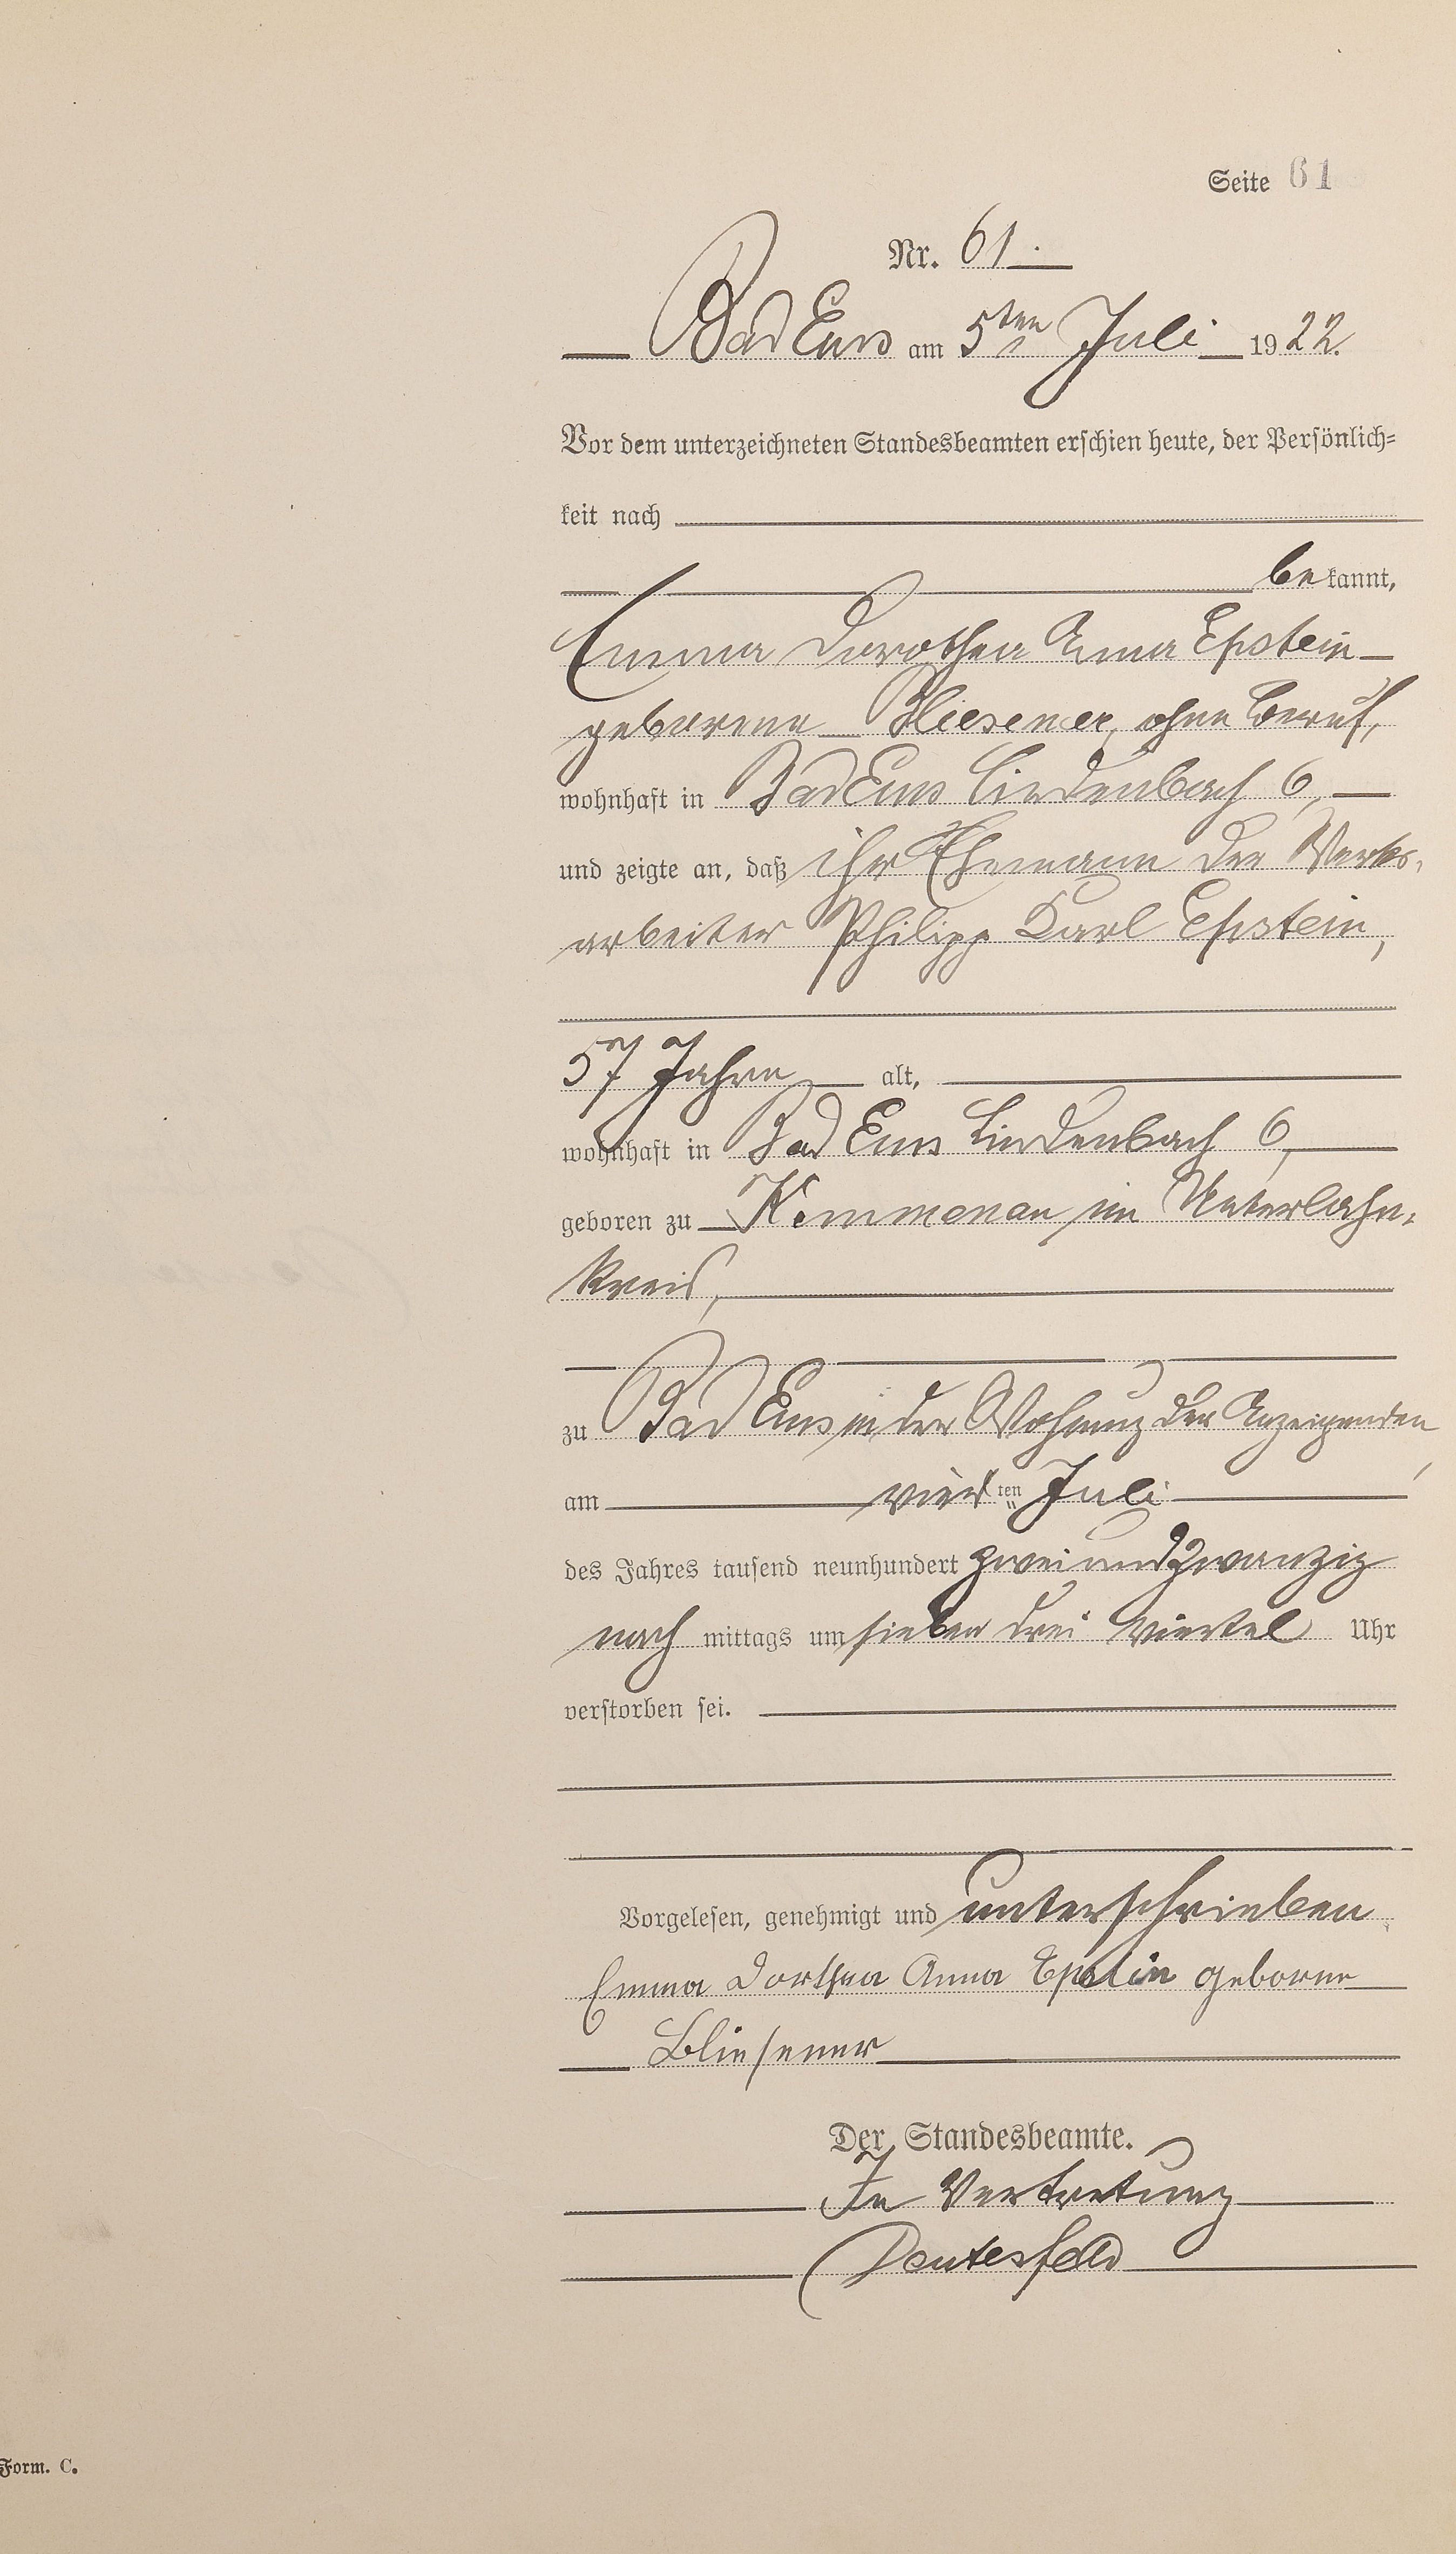 Seite 61
Nr. 61.
Bad Ems am 5ten Juli 1922.
Vor dem unterzeichneten Standesbeamten erschien heute, der Persönlich=
keit nach
bekannt,
Emma Dorothea Anna Epstein
geborene Bliesener, ohne Beruf,
wohnhaft in Bad Ems Lindenbach 6,
und zeigte an, daß ihr Ehemann der Werks-
arbeiter Philipp Karl Epstein,
57 Jahre alt,
wohnhaft in Bad Ems Lindenbach 6,
geboren zu Kemmenau im Unterlahn-
kreis,
zu Bad Ems in der Wohnung der Anzeigenden,
am vierten Juli
des Jahres tausend neunhundert zweiundzwanzig
nach mittags um sieben drei viertel Uhr
verstorben sei.
Vorgelesen, genehmigt und unterschrieben
Emma Dorthea Anna Epstein geborne
Bliesener
Der Standesbeamte.
In Vertretung
Form. C.